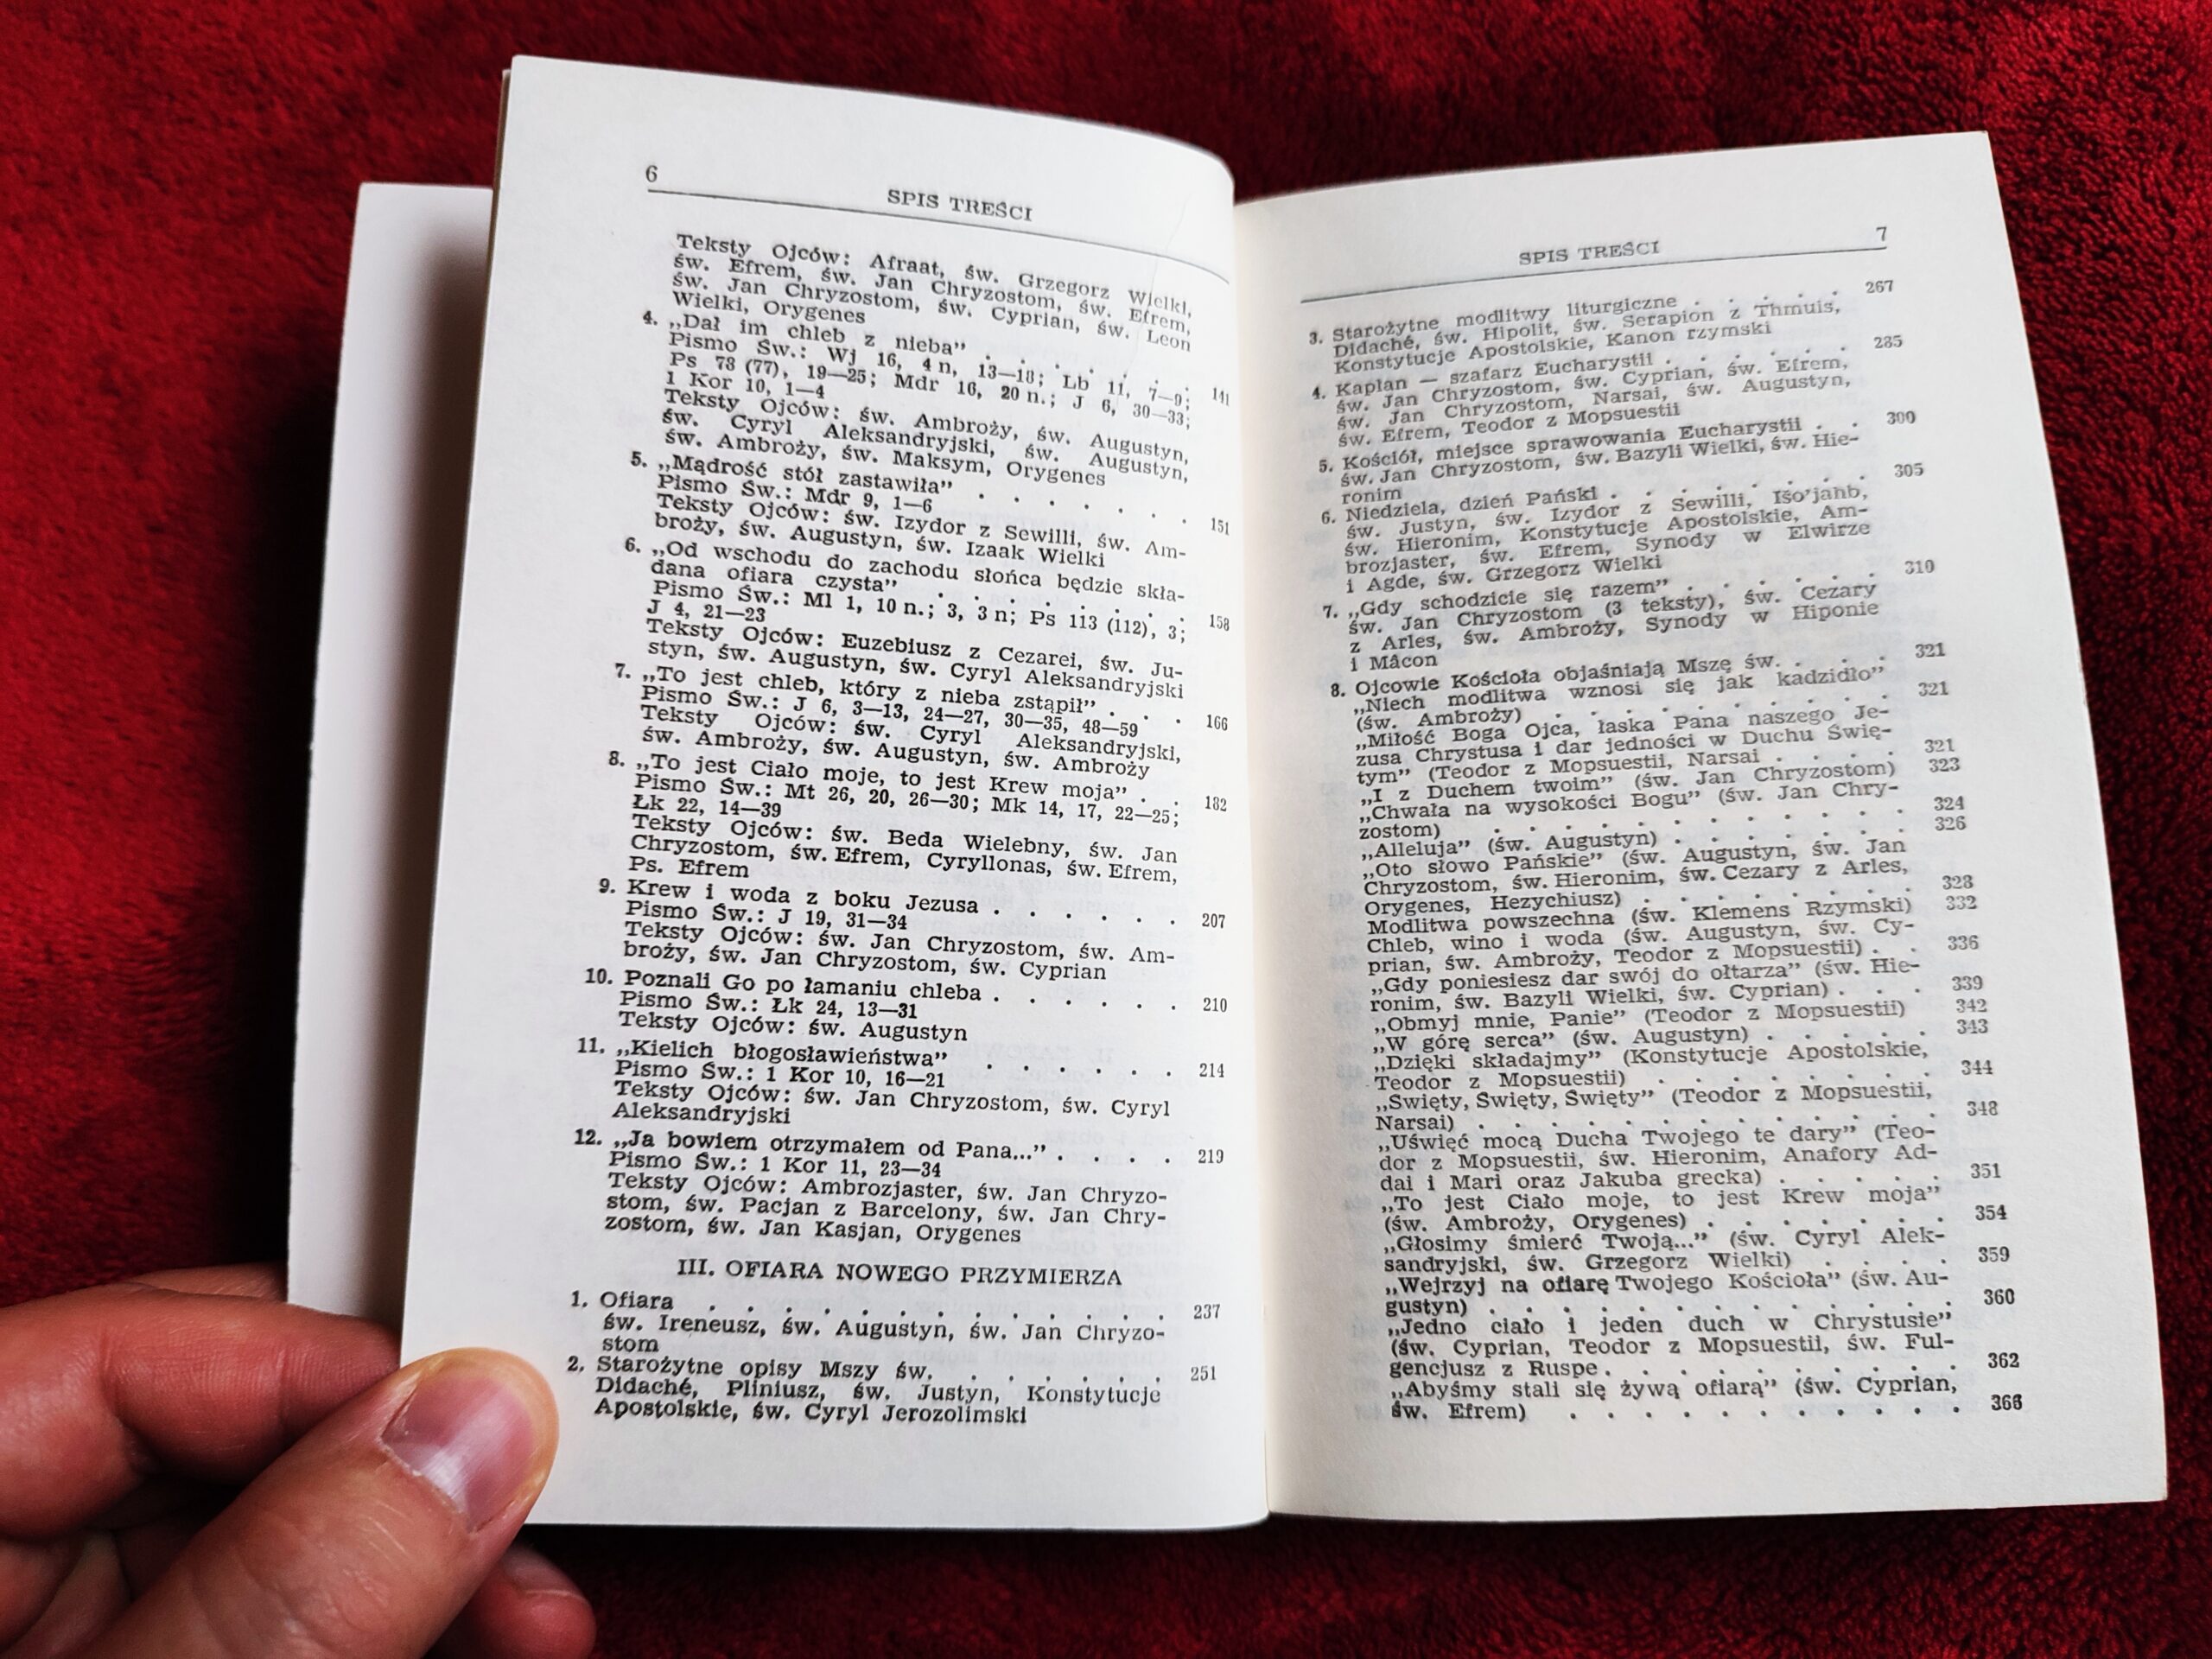 6
SPIS TREŚCI
Teksty Ojców: Afraat, św. Grzegorz Wielki,
św. Efrem, św. Jan Chryzostom, św. Efrem,
św. Jan Chryzostom, św. Cyprian, św. Leon
Wielki, Orygenes
4. „Dał im chleb z nieba” . . . . . . 141
Pismo Św.: Wj 16, 4 n, 13—18; Lb 11, 7—9;
Ps 78 (77), 19—25; Mdr 16, 20 n.; J 6, 30—33;
1 Kor 10, 1—4
Teksty Ojców: św. Ambroży, św. Augustyn,
św. Cyryl Aleksandryjski, św. Augustyn,
św. Ambroży, św. Maksym, Orygenes
5. „Mądrość stół zastawiła” . . . . . . 151
Pismo Św.: Mdr 9, 1—6
Teksty Ojców: św. Izydor z Sewilli, św. Am-
broży, św. Augustyn, św. Izaak Wielki
6. „Od wschodu do zachodu słońca będzie skła-
dana ofiara czysta” . . . . . . . 158
Pismo Św.: Ml 1, 10 n.; 3, 3 n; Ps 113 (112), 3;
J 4, 21—23
Teksty Ojców: Euzebiusz z Cezarei, św. Ju-
styn, św. Augustyn, św. Cyryl Aleksandryjski
7. „To jest chleb, który z nieba zstąpił” . . . 166
Pismo Św.: J 6, 3—13, 24—27, 30—35, 48—59
Teksty Ojców: św. Cyryl Aleksandryjski,
św. Ambroży, św. Augustyn, św. Ambroży
8. „To jest Ciało moje, to jest Krew moja” . . 182
Pismo Św.: Mt 26, 20, 26—30; Mk 14, 17, 22—25;
Łk 22, 14—39
Teksty Ojców: św. Beda Wielebny, św. Jan
Chryzostom, św. Efrem, Cyryllonas, św. Efrem,
Ps. Efrem
9. Krew i woda z boku Jezusa . . . . . . 207
Pismo Św.: J 19, 31—34
Teksty Ojców: św. Jan Chryzostom, św. Am-
broży, św. Jan Chryzostom, św. Cyprian
10. Poznali Go po łamaniu chleba . . . . . . 210
Pismo Św.: Łk 24, 13—31
Teksty Ojców: św. Augustyn
11. „Kielich błogosławieństwa” . . . . . . 214
Pismo Św.: 1 Kor 10, 16—21
Teksty Ojców: św. Jan Chryzostom, św. Cyryl
Aleksandryjski
12. „Ja bowiem otrzymałem od Pana...” . . . . 219
Pismo Św.: 1 Kor 11, 23—34
Teksty Ojców: Ambrozjaster, św. Jan Chryzo-
stom, św. Pacjan z Barcelony, św. Jan Chry-
zostom, św. Jan Kasjan, Orygenes
III. OFIARA NOWEGO PRZYMIERZA
1. Ofiara . . . . . . . . . . . . 237
św. Ireneusz, św. Augustyn, św. Jan Chryzo-
stom
2. Starożytne opisy Mszy św. . . . . . . 251
Didaché, Pliniusz, św. Justyn, Konstytucje
Apostolskie, św. Cyryl Jerozolimski
SPIS TREŚCI
7
3. Starożytne modlitwy liturgiczne . . . . . 267
Didaché, św. Hipolit, św. Serapion z Thmuis,
Konstytucje Apostolskie, Kanon rzymski
4. Kapłan — szafarz Eucharystii . . . . . . 285
św. Jan Chryzostom, św. Cyprian, św. Efrem,
św. Jan Chryzostom, Narsai, św. Augustyn,
św. Efrem, Teodor z Mopsuestii
5. Kościół, miejsce sprawowania Eucharystii . . 300
św. Jan Chryzostom, św. Bazyli Wielki, św. Hie-
ronim
6. Niedziela, dzień Pański . . . . . . . 305
św. Justyn, św. Izydor z Sewilli, Išo’jahb,
św. Hieronim, Konstytucje Apostolskie, Am-
brozjaster, św. Efrem, Synody w Elwirze
i Agde, św. Grzegorz Wielki
7. „Gdy schodzicie się razem” . . . . . . 310
św. Jan Chryzostom (3 teksty), św. Cezary
z Arles, św. Ambroży, Synody w Hiponie
i Mâcon
8. Ojcowie Kościoła objaśniają Mszę św. . . . 321
„Niech modlitwa wznosi się jak kadzidło”
(św. Ambroży) . . . . . . . . . 321
„Miłość Boga Ojca, łaska Pana naszego Je-
zusa Chrystusa i dar jedności w Duchu Świę-
tym” (Teodor z Mopsuestii, Narsai . . . . 321
„I z Duchem twoim” (św. Jan Chryzostom) 323
„Chwała na wysokości Bogu” (św. Jan Chry-
zostom) . . . . . . . . . . . 324
„Alleluja” (św. Augustyn) . . . . . . . 326
„Oto słowo Pańskie” (św. Augustyn, św. Jan
Chryzostom, św. Hieronim, św. Cezary z Arles,
Orygenes, Hezychiusz) . . . . . . . 328
Modlitwa powszechna (św. Klemens Rzymski) 332
Chleb, wino i woda (św. Augustyn, św. Cy-
prian, św. Ambroży, Teodor z Mopsuestii) . . 336
„Gdy poniesiesz dar swój do ołtarza” (św. Hie-
ronim, św. Bazyli Wielki, św. Cyprian) . . . 339
„Obmyj mnie, Panie” (Teodor z Mopsuestii) 342
„W górę serca” (św. Augustyn) . . . . . 343
„Dzięki składajmy” (Konstytucje Apostolskie,
Teodor z Mopsuestii) . . . . . . . . 344
„Swięty, Swięty, Swięty” (Teodor z Mopsuestii,
Narsai) . . . . . . . . . . . . 348
„Uświęć mocą Ducha Twojego te dary” (Teo-
dor z Mopsuestii, św. Hieronim, Anafory Ad-
dai i Mari oraz Jakuba grecka) . . . . . 351
„To jest Ciało moje, to jest Krew moja”
(św. Ambroży, Orygenes) . . . . . . . 354
„Głosimy śmierć Twoją...” (św. Cyryl Alek-
sandryjski, św. Grzegorz Wielki) . . . . 359
„Wejrzyj na ofiarę Twojego Kościoła” (św. Au-
gustyn) . . . . . . . . . . . . 360
„Jedno ciało i jeden duch w Chrystusie”
(św. Cyprian, Teodor z Mopsuestii, św. Ful-
gencjusz z Ruspe . . . . . . . . . . 362
„Abyśmy stali się żywą ofiarą” (św. Cyprian,
św. Efrem) . . . . . . . . . . 366